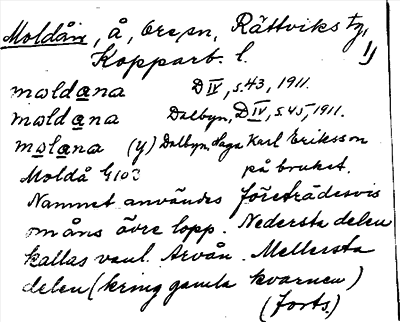 Moldån, å, Ore sn, Rättviks tg,
Kopparb. l. 1)
moldana D IV, s. 43, 1911.
moldana Dalbyn, D IV, s. 45, 1911.
molana (y) Dalbyn, Haga Karl Eriksson
Moldå G103 på bruket.
Namnet användes företrädesvis
om åns övre lopp. Nedersta delen
kallas vanl. Arvån. Mellersta
delen (kring gamla kvarnen)
(forts.)